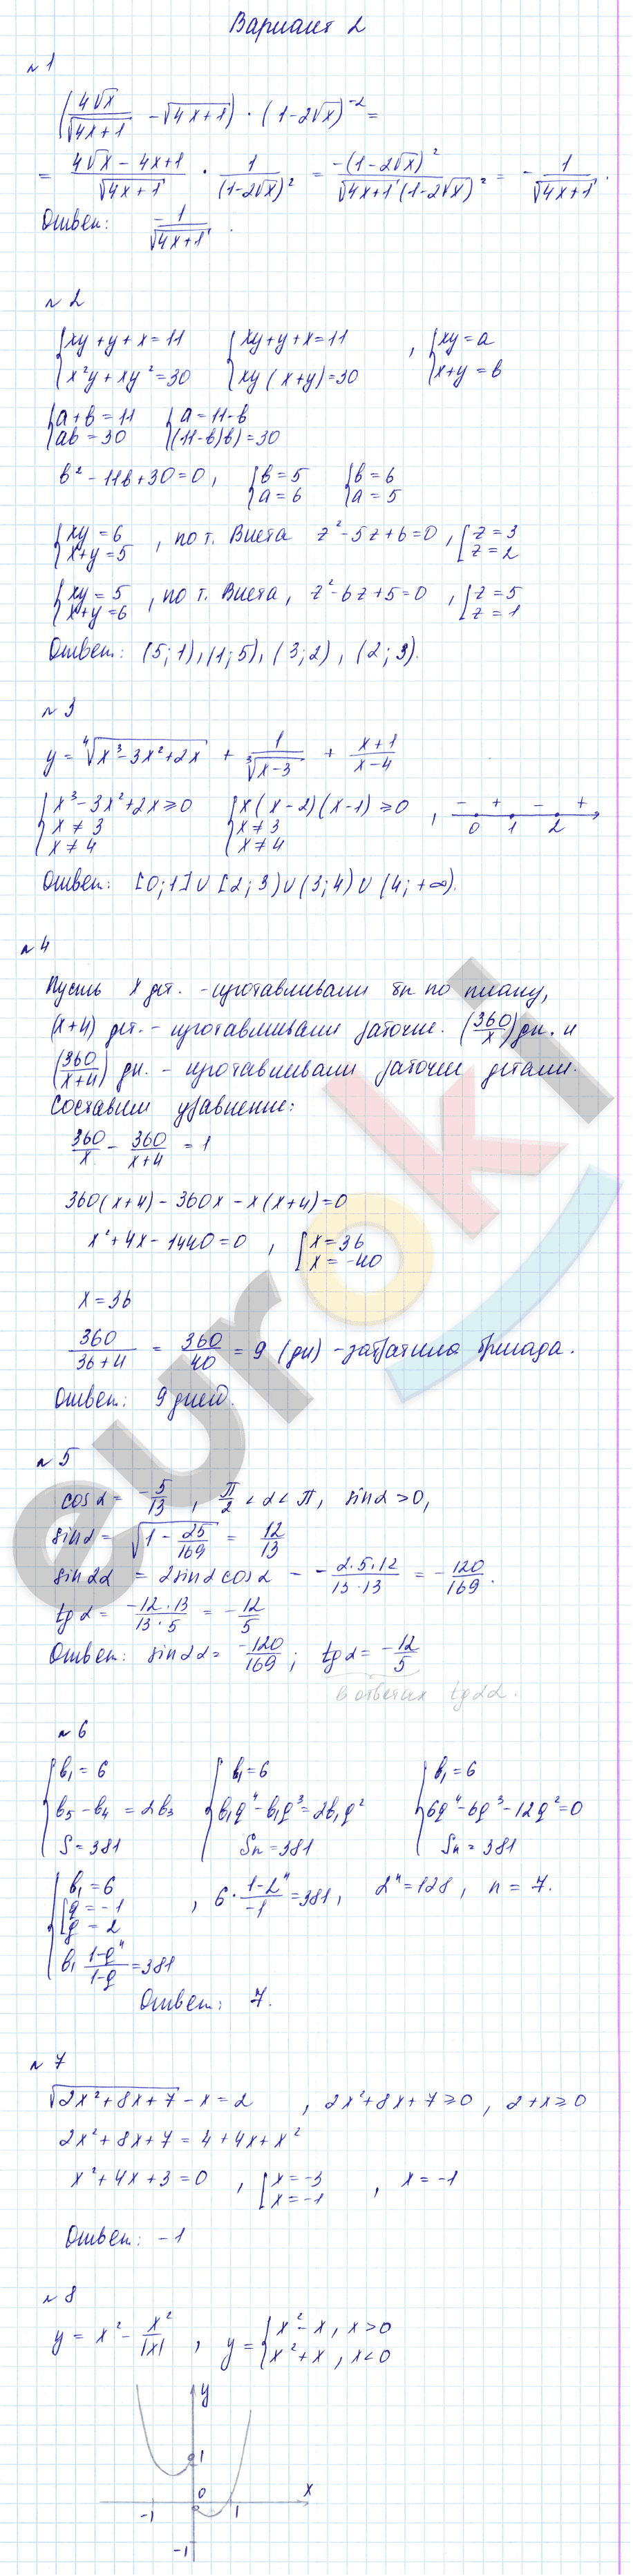 Вариант 2
№1
(4√x/√(4x+1) - √(4x+1)) · (1-2√x)^-2 =
= (4√x - 4x+1)/√(4x+1) · 1/(1-2√x)² = -(1-2√x)²/(√(4x+1)(1-2√x)²) = - 1/√(4x+1).
Ответ: -1/√(4x+1).
№2
{xy+y+x=11 {xy+y+x=11 , {xy=a
{x²y+xy²=30 {xy(x+y)=30 {x+y=b
{a+b=11 {a=11-b
{ab=30 {(11-b)b)=30
b²-11b+30=0, {b=5 {b=6
{a=6 {a=5
{xy=6 , по т. Виета z²-5z+6=0, [z=3
{x+y=5 [z=2
{xy=5 , по т. Виета, z²-6z+5=0, [z=5
{x+y=6 [z=1
Ответ: (5;1), (1;5), (3;2), (2;3).
№3
y = ⁴√(x³-3x²+2x) + 1/³√(x-3) + (x+1)/(x-4)
{x³-3x²+2x≥0 {x(x-2)(x-1)≥0 , - + - +
{x≠3 {x≠3 0 1 2
{x≠4 {x≠4
Ответ: [0;1]∪[2;3)∪(3;4)∪(4;+∞).
№4
Пусть x дет. - изготавливали бы по плану,
(x+4) дет. - изготавливали рабочие. (360/x) дн. и
(360/(x+4)) дн. - изготавливали рабочие детали.
Составим уравнение:
360/x - 360/(x+4) = 1
360(x+4) - 360x - x(x+4)=0
x²+4x-1440=0 , [x=36
[x=-40
x=36
360/(36+4) = 360/40 = 9 (дн) - затратила бригада.
Ответ: 9 дней.
№5
cosα= -5/13 , π/2<α<π, sinα>0,
sinα= √(1-25/169) = 12/13
sin2α = 2sinαcosα - -2·5·12/13·13 = -120/169.
tgα= -12·13/13·5 = -12/5
Ответ: sin2α= -120/169; tgα= -12/5
в ответах tg2α.
№6
{b₁=6 {b₁=6 {b₁=6
{b₅-b₄=2b₃ {b₁q⁴-b₁q³=2b₁q² {6q⁴-6q³-12q²=0
{S=381 {Sn=381 {Sn=381
{b₁=6
{[q=-1 , 6·(1-2ⁿ)/-1=381, 2ⁿ=128, n=7.
{[q=2
{b₁ (1-qⁿ)/(1-q)=381
Ответ: 7.
№7
√(2x²+8x+7) - x=2 , 2x²+8x+7≥0, 2+x≥0
2x²+8x+7=4+4x+x²
x²+4x+3=0 , [x=-3 , x=-1
[x=-1
Ответ: -1
№8
y = x² - x²/|x| , y={x²-x, x>0
{x²+x, x<0
y
1
0 x
-1 1
-1
euroki